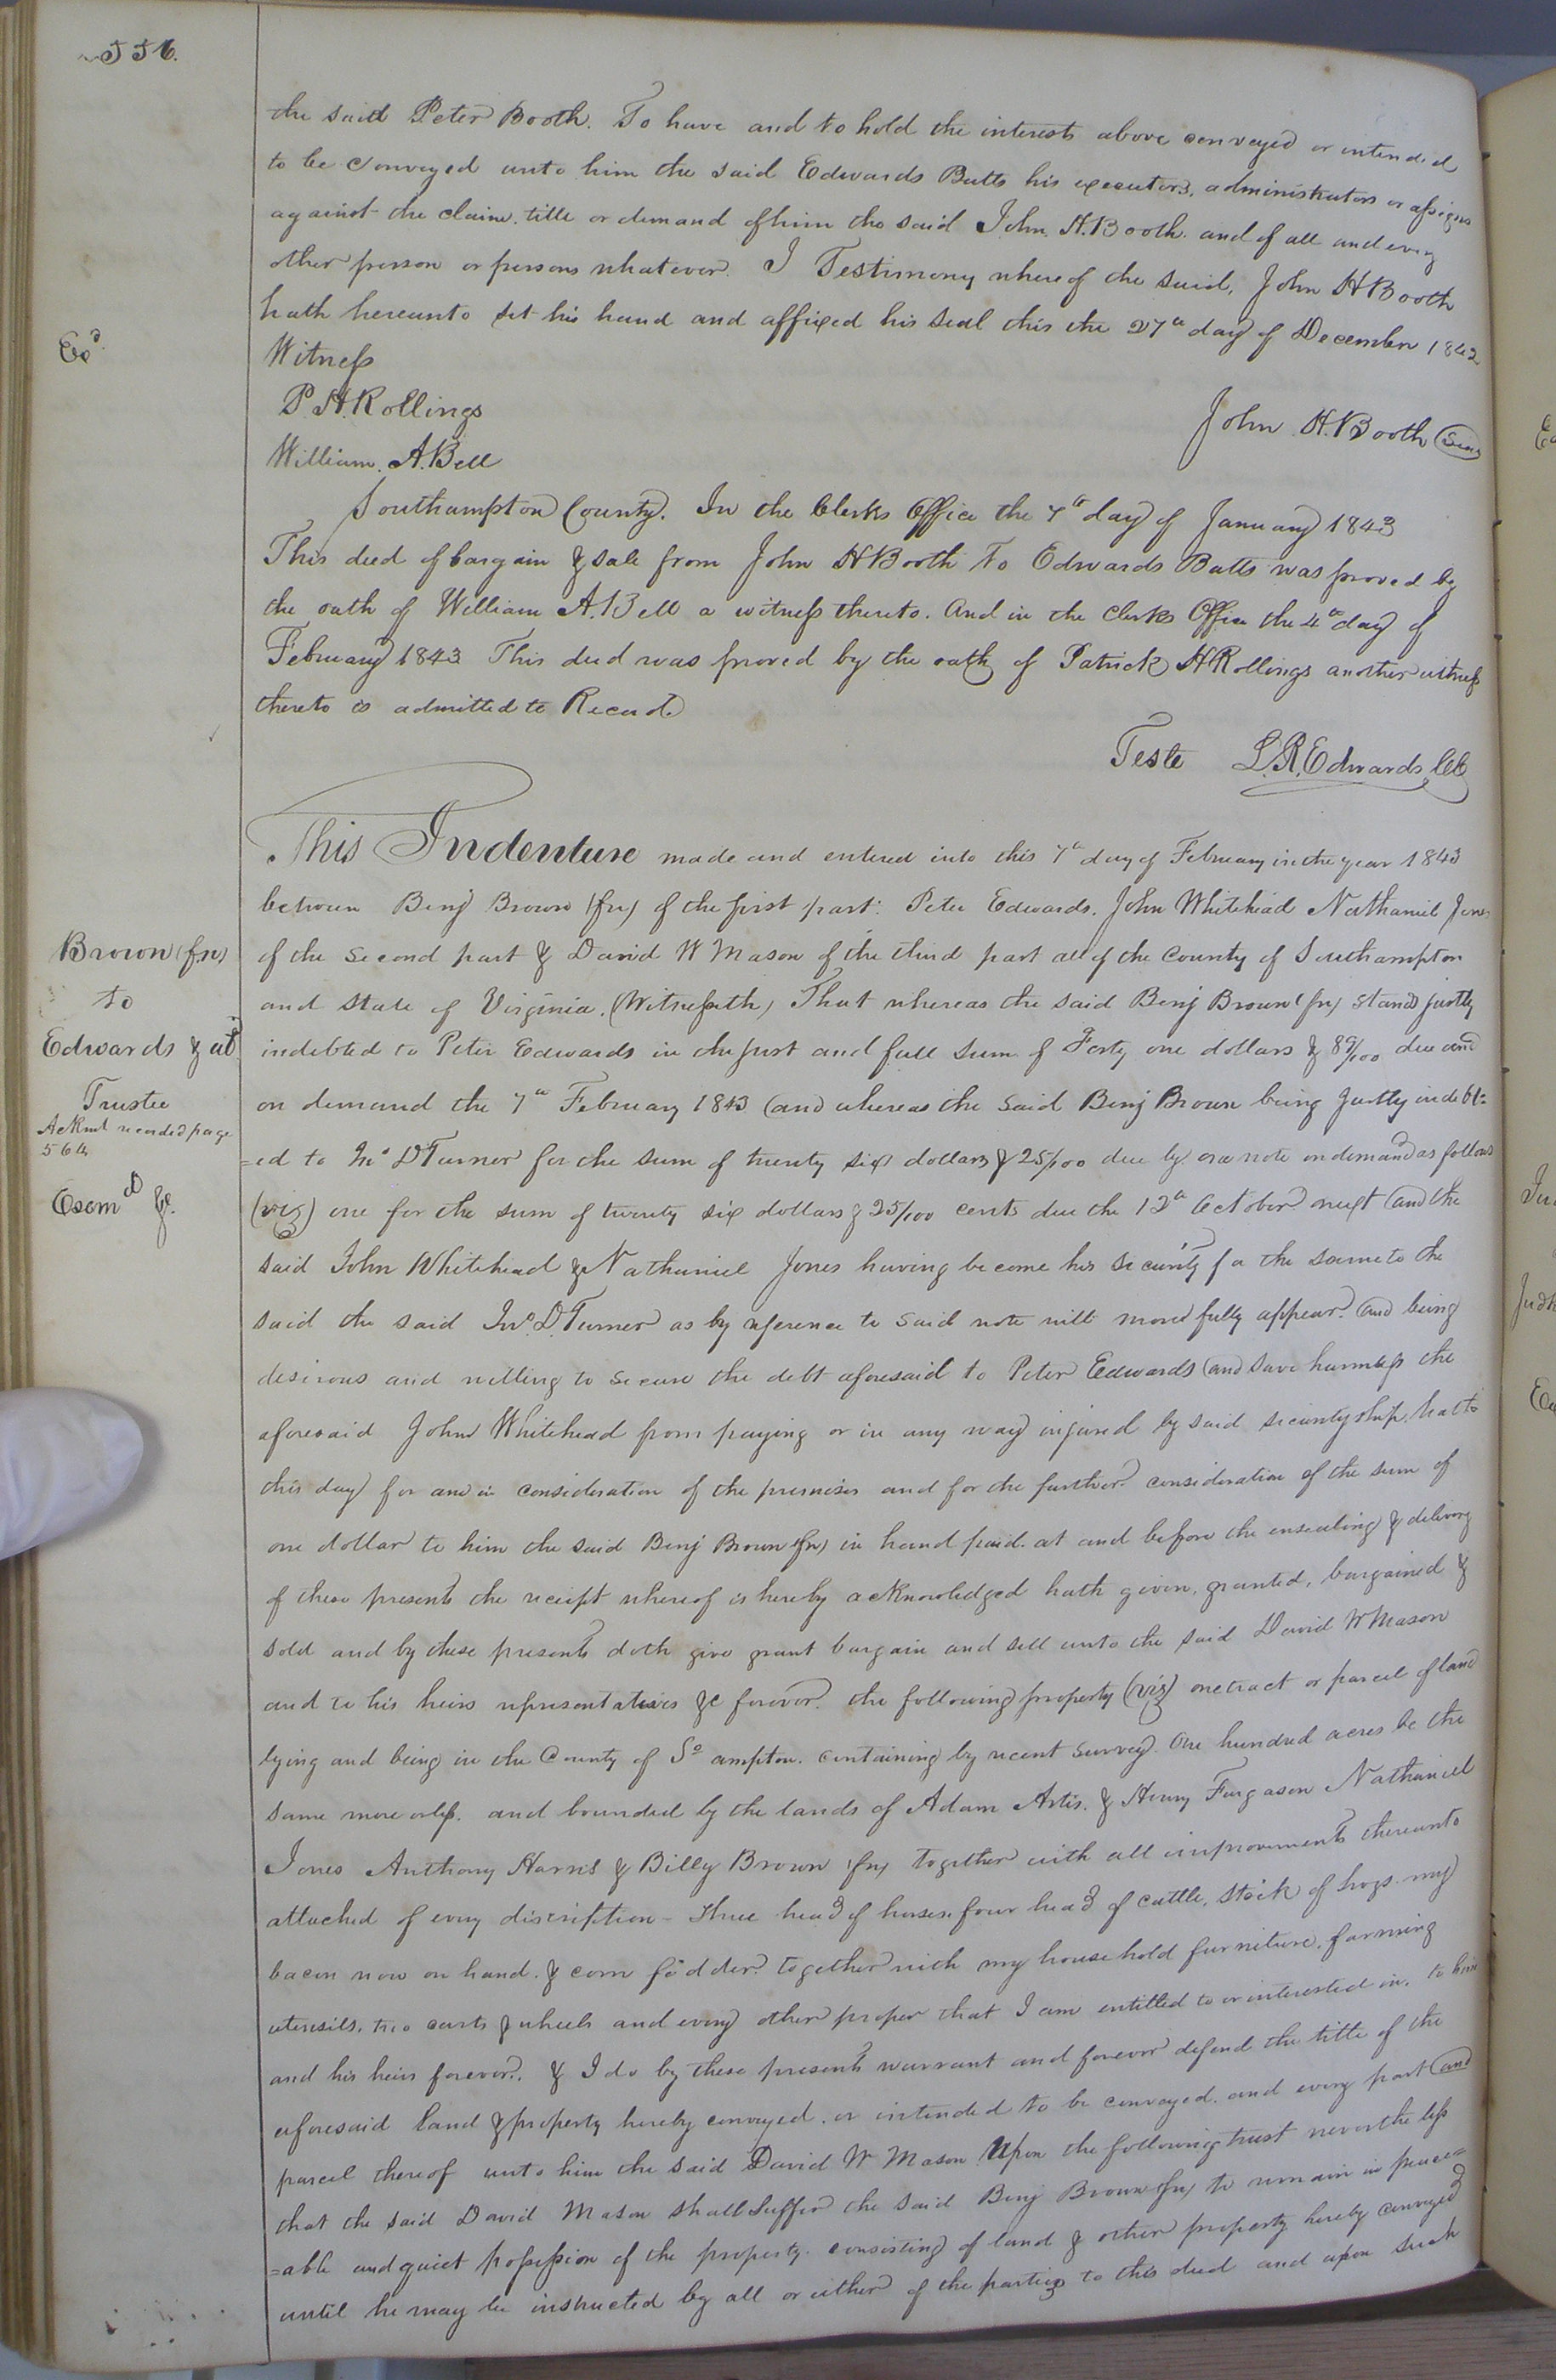 556.
the said Peter Booth. To have and to hold the interests above conveyed or intended
to be conveyed unto him the said Edwards Butts his executors, administrators or assigns
against the claim, title or demand of him the said John H. Booth. and of all and every
other person or persons whatever. I Testimony whereof the said, John H Booth
hath hereunto set his hand and affixed his seal this the 27th day of December 1842
Exd
Witness
P. H. Rollings
John H. Booth Seal
William. A. Bell
Southampton County. In the Clerks Office the 7th day of January 1843
This deed of bargain & sale from John H Booth to Edwards Butts was proved by
the oath of William A. Bell a witness thereto. And in the Clerks Office the 4th day of
February 1843 This deed was proved by the oath of Patrick H Rollings another witness
thereto is admitted to Record
Teste L. R. Edwards, Clk
This Indenture made and entered into this 7th day of February in the year 1843
between Benj Brown (fn) of the first part. Peter Edwards. John Whitehead Nathaniel Jones
of the second part & David W Mason of the third part all of the County of Southampton
and State of Virginia. (Witnesseth) That whereas the said Benj Brown (fn) stands justly
indebted to Peter Edwards in the just and full sum of Forty one dollars & 89/100 due and
on demand the 7th February 1843 (and whereas the said Benj Brown being justly indebt=
=ed to Jno D Turner for the sum of twenty six dollars & 25/100 due by one note on demand as follows
(viz) one for the sum of twenty six dollars & 25/100 cents due the 12th October next and the
said John Whitehead & Nathaniel Jones having become his security for the same to the
said the said Jno. D. Turner as by reference to said note will more fully appear. and being
desirous and willing to secure the debt aforesaid to Peter Edwards and save harmless the
aforesaid John Whitehead from paying or in any way injured by said securityship, hath
this day for and in consideration of the premises and for the further consideration of the sum of
one dollar to him the said Benj Brown (fn) in hand paid. at and before the ensealing & delivery
of these presents the receipt whereof is hereby acknowledged hath given, granted, bargained &
sold and by these presents doth give grant bargain and sell unto the said David W Mason
and to his heirs representatives &c forever. the following property (viz) one tract or parcel of land
lying and being in the County of So ampton. containing by recent survey. One hundred acres be the
same more or less. and bounded by the lands of Adam Artis. & Henry Furgason Nathaniel
Jones Anthony Harris & Billy Brown (fn) together with all improvements thereunto
attached of every discription - Three head of horses. four head of cattle, stock of hogs. my
bacon now on hand. & corn fodder. together with my household furniture, farming
utensils. two carts & wheels and every other proper that I am entitled to or interested in. to him
and his heirs forever. & I do by these presents warrant and forever defend the title of the
aforesaid land & property hereby conveyed. or intended to be conveyed. and every part and
parcel thereof unto him the said David W Mason Upon the following trust nevertheless
that the said David Mason shall suffer the said Benj Brown (fn) to remain in peace=
=able and quiet possession of the property. consisting of land & other property hereby conveyed
until he may be instructed by all or either of the parties to this deed and upon such
Brown (fn)
to
Edwards & als
Trustee
Acknt recorded page
564
Exemd &c.